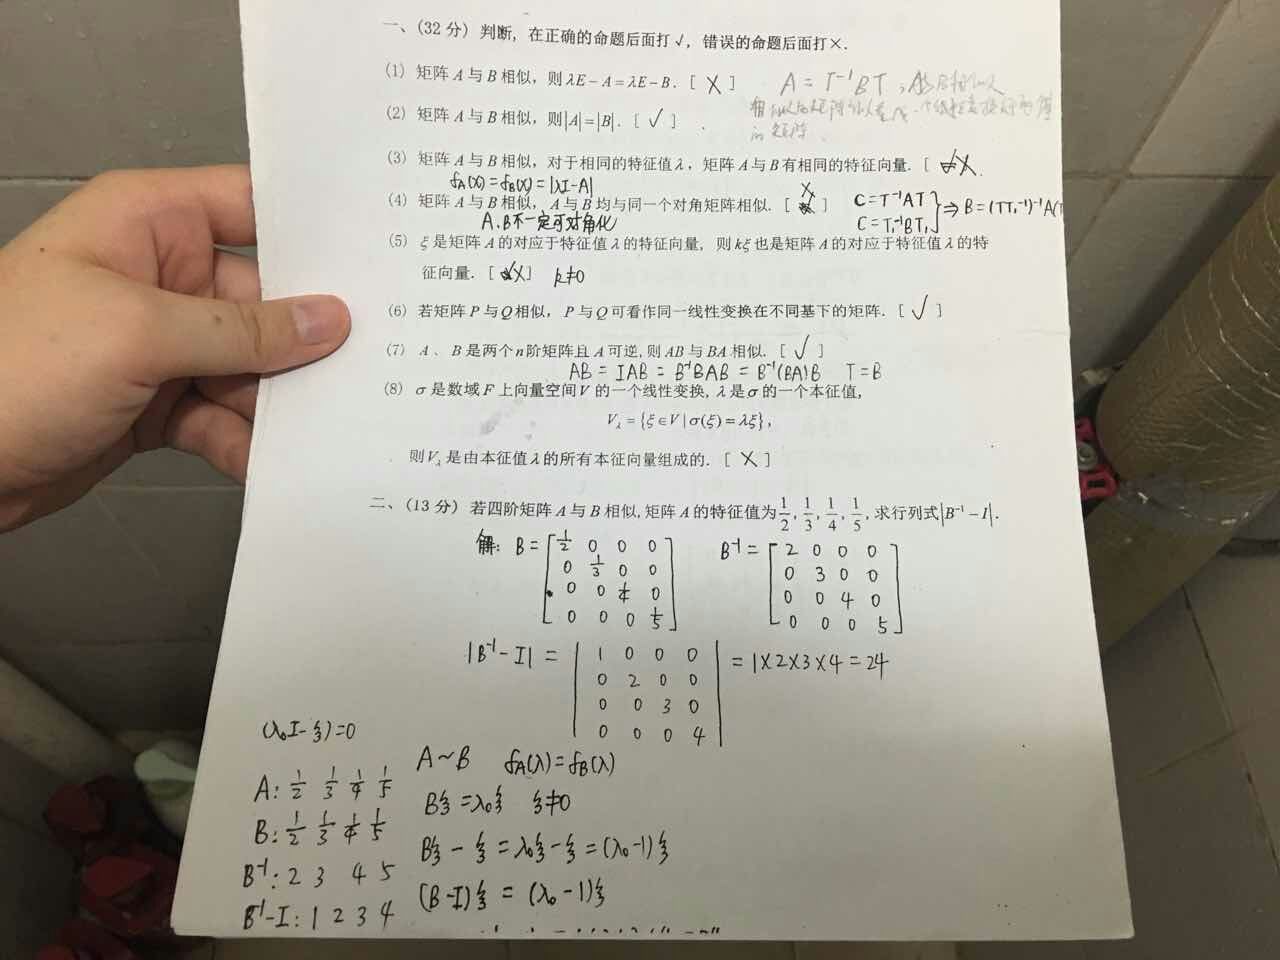 一、(32 分) 判断, 在正确的命题后面打 √, 错误的命题后面打×.
(1) 矩阵 A 与 B 相似, 则 λE − A = λE − B. [ X ] A = T⁻¹BT
(2) 矩阵 A 与 B 相似, 则 |A| = |B|. [ √ ]
的矩阵.
(3) 矩阵 A 与 B 相似, 对于相同的特征值 λ, 矩阵 A 与 B 有相同的特征向量. [ X
f_A(x) = f_B(x) = |λI−A|
(4) 矩阵 A 与 B 相似, A 与 B 均与同一个对角矩阵相似. [ X ] C = T⁻¹AT
A.B不一定可对角化 C = T₁⁻¹BT₁ } ⇒ B = (TT₁⁻¹)⁻¹A(T
(5) ξ 是矩阵 A 的对应于特征值 λ 的特征向量, 则 kξ 也是矩阵 A 的对应于特征值 λ 的特
征向量. [ X ] k≠0
(6) 若矩阵 P 与 Q 相似, P 与 Q 可看作同一线性变换在不同基下的矩阵. [ √ ]
(7) A 、 B 是两个 n 阶矩阵且 A 可逆, 则 AB 与 BA 相似. [ √ ]
AB = IAB = B⁻¹BAB = B⁻¹(BA)B T = B
(8) σ 是数域 F 上向量空间 V 的一个线性变换, λ 是 σ 的一个本征值,
V_λ = {ξ ∈ V | σ(ξ) = λξ},
则 V_λ 是由本征值 λ 的所有本征向量组成的. [ X ]
二、(13 分) 若四阶矩阵 A 与 B 相似, 矩阵 A 的特征值为 1/2, 1/3, 1/4, 1/5, 求行列式 |B⁻¹ − I|.
解: B = [ 1/2 0 0 0 ] B⁻¹ = [ 2 0 0 0 ]
0 1/3 0 0 0 3 0 0
0 0 1/4 0 0 0 4 0
0 0 0 1/5 0 0 0 5
|B⁻¹ − I| = | 1 0 0 0 | = 1×2×3×4 = 24
0 2 0 0
0 0 3 0
0 0 0 4
(λ₀I−ξ)=0
A: 1/2 1/3 1/4 1/5
B: 1/2 1/3 1/4 1/5
B⁻¹: 2 3 4 5
B⁻¹−I: 1 2 3 4
A∼B f_A(λ) = f_B(λ)
Bξ = λ₀ξ ξ≠0
Bξ − ξ = λ₀ξ − ξ = (λ₀−1)ξ
(B−I)ξ = (λ₀−1)ξ